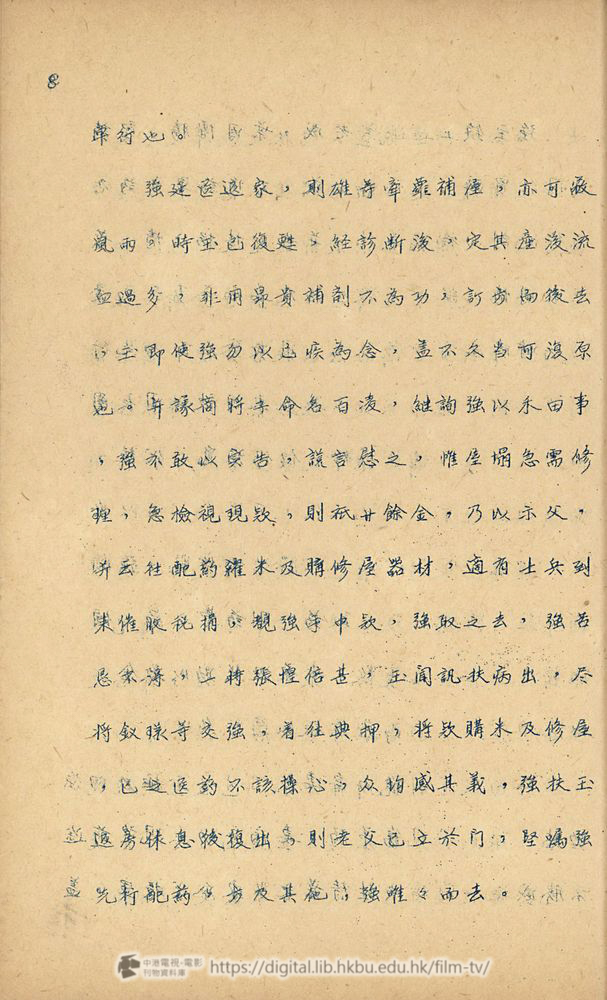 8
得也。
強延医返家，則雄等牽蘿補屋，亦可蔽
風雨，時玉已復甦，經診斷後，定其產後流
血過多，非用昂貴補劑不為功，訂方而後去
，玉即使強勿以己疾為念，蓋不久當可復原
也。并議簡將子命名百凌，継詢強以禾田事
，強不敢以实告，謊言慰之，惟屋塌急需修
理，急檢視現欵，則祇廿餘金，乃以示父，
并云往配葯糴米及購修屋器材，適有士兵到
來催收税捐，覩強手中欵，強取之去，強苦
懇不獲，正特張惶倍甚，玉聞訊扶病出，尽
將釵環等交強，着往典押，將欵購米及修屋
，己之医葯不該操心，众均感其義，強扶玉
返房休息後復出，則老父已立於門，堅嘱強
先行配葯俟其他，強唯々而去。
中港電視·電影
刊物資料庫
https://digital.lib.hkbu.edu.hk/film-tv/